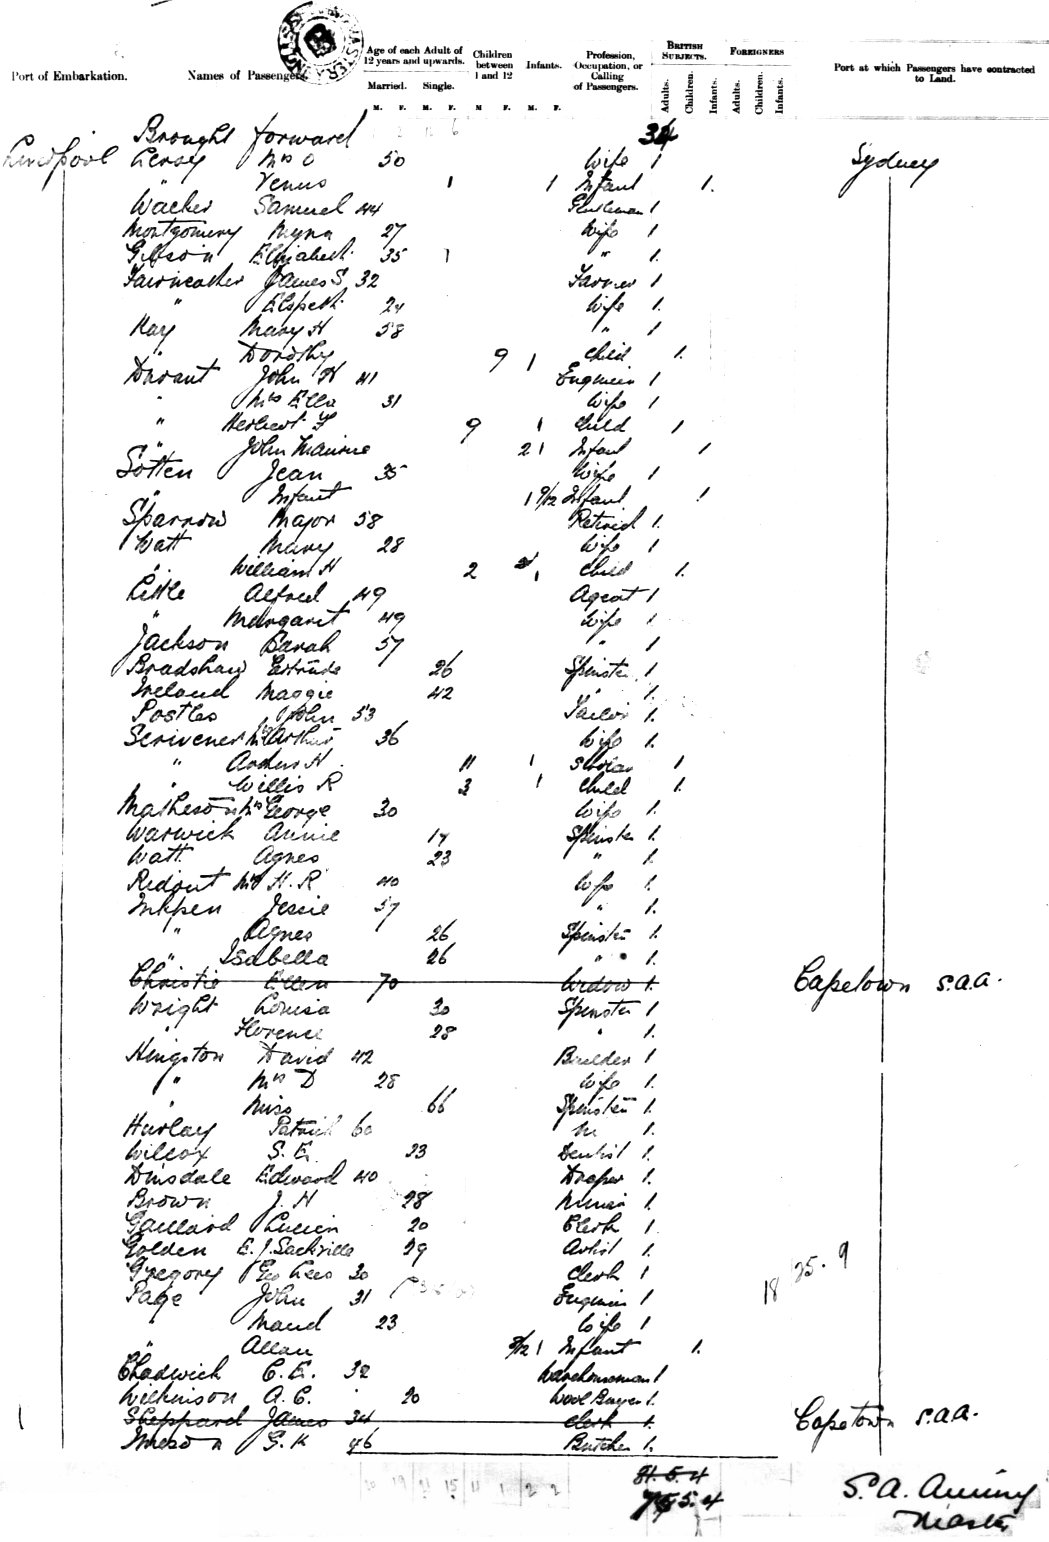 Port of Embarkation. Names of Passengers. Age of each Adult of 12 years and upwards. Children between 1 and 12 Infants. Profession, Occupation, or Calling of Passengers. British Subjects. Foreigners Port at which Passengers have contracted to Land.
Married. Single. Adults. Children. Infants. Adults. Children. Infants.
M. F. M. F. M F. M. F.
Brought forward 34
Liverpool Leroy Mrs O 50 Wife 1 Sydney
" Venus 1 1 Infant 1.
Walker Samuel 44 Gentleman 1
Montgomery Myra 27 Wife 1
Gibson Elizabeth 35 1 " 1.
Fairweather James S. 32 Farmer 1
" Elspeth 24 Wife 1.
Kay Mary H 58 " 1
" Dorothy 9 1 Child 1.
Durant John H 41 Engineer 1
" Mrs Ella 31 Wife 1
" Herbert F 9 1 Child 1
" John Maurice 2 1 Infant 1
Sotten Jean 35 Wife 1
" Infant 1 9/12 Infant 1
Sparrow Major 58 Retired 1.
Watt Mary 28 Wife 1
" William H 2 1 Child 1.
Little Alfred 49 Agent 1
" Margaret 49 Wife 1
Jackson Sarah 57 " 1
Bradshaw Gertrude 26 Spinster 1
Ireland Maggie 42 " 1.
Postles John 53 Tailor 1.
Scrivener Mrs Arthur 36 Wife 1.
" Arthur H. 11 1 Scholar 1
" Willis R 3 1 Child 1.
Matheson Mrs George 30 Wife 1.
Warwick Annie 17 Spinster 1.
Watt Agnes 23 " 1.
Ridout Mrs H. R. 40 Wife 1.
Inkpen Jessie 57 " 1.
" Agnes 26 Spinster 1.
" Isabella 26 " 1.
Christie Ellen 70 Widow 1. Capetown S.A.A.
Wright Louisa 30 Spinster 1
" Florence 28 " 1.
Kingston David 42 Builder 1
" Mrs D 28 Wife 1.
" Miss 66 Spinster 1.
Hurlay Patrick 60 1.
Wilcox S. E. 23 Dentist 1.
Dinsdale Edward 40 Draper 1.
Brown J. H 28 Miner 1.
Gaillard Lucien 20 Clerk 1
Golden E. J. Sackville 29 Artist 1.
Gregory Geo Lees 30 Clerk 1 18 25. 9
Page John 31 Engineer 1
" Maud 23 Wife 1
" Allan 8/12 1 Infant 1.
Chadwick C. E. 32 Warehouseman 1
Wilkinson A. C. 20 Wool Buyer 1.
1 Sheppard James 34 Clerk 1. Capetown S.A.A.
G. K 46 Butcher 1.
81. 5. 4
5. 4
S. A.
Master